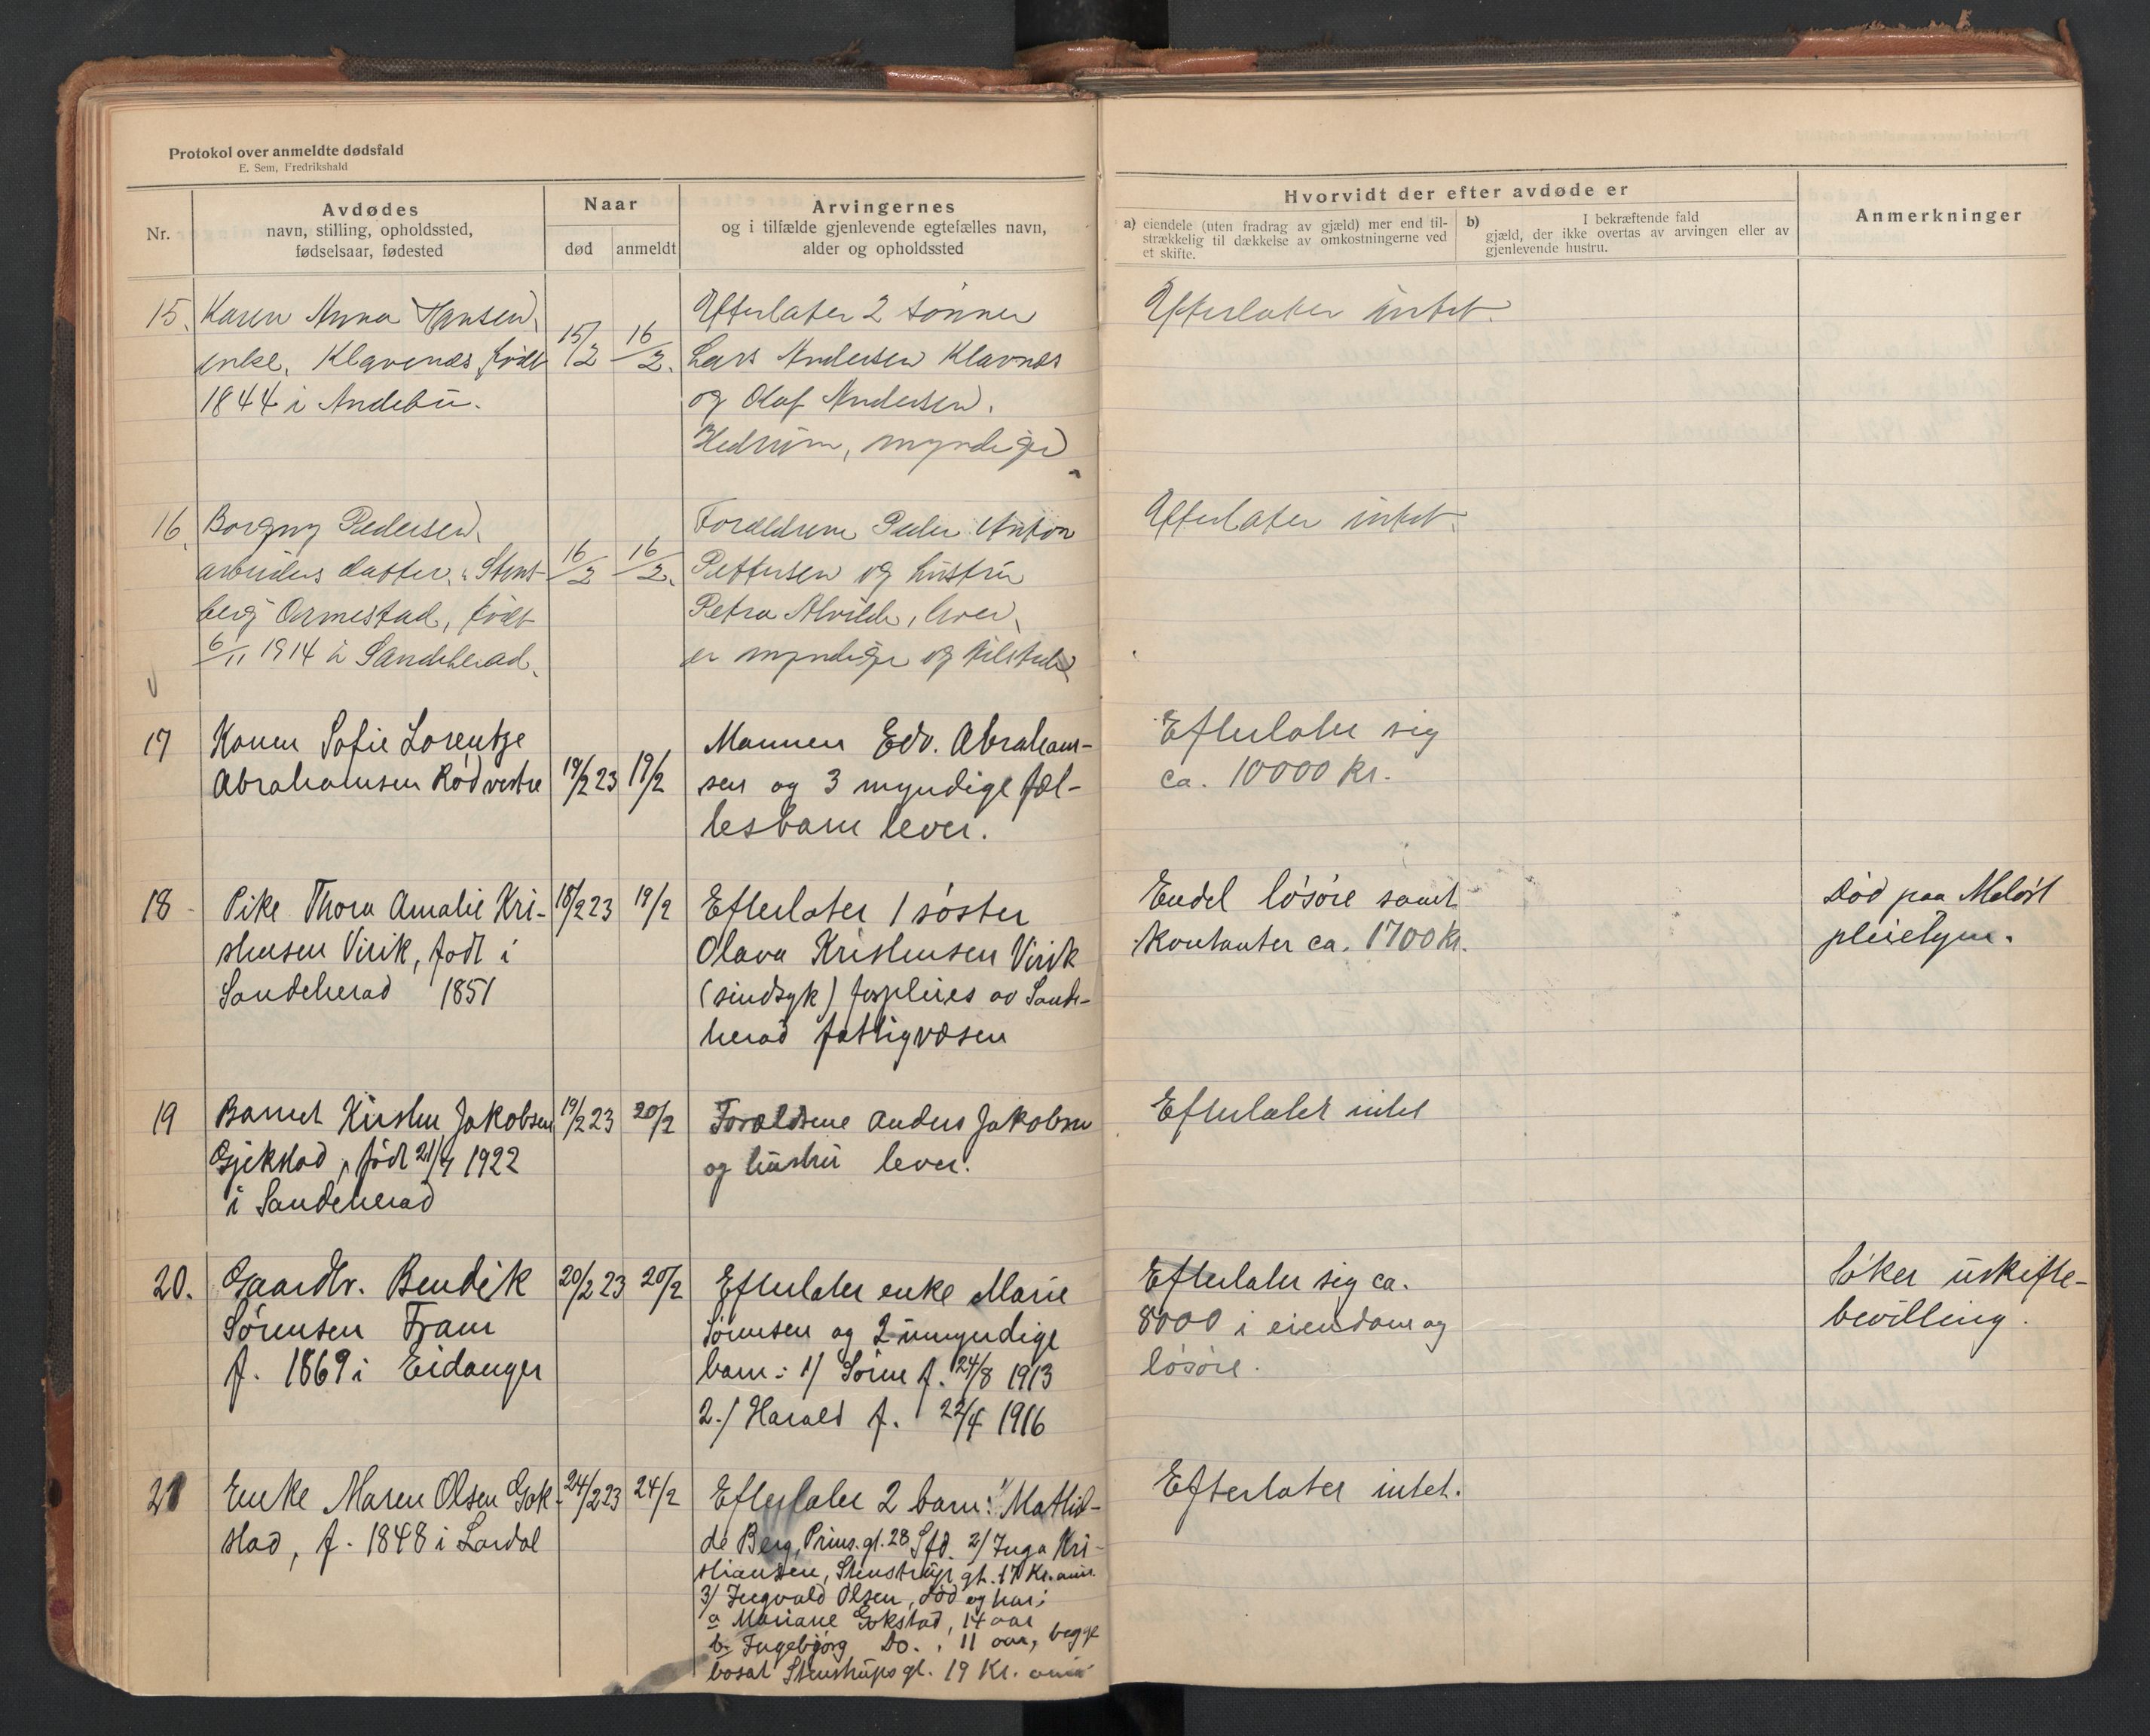 Protokol over anmeldte dødsfald
E. Sem, Fredrikshald
Nr.
Avdødes
navn, stilling, opholdssted,
fødselsaar, fødested
Naar
død
anmeldt
Arvingernes
og i tilfælde gjenlevende egtefælles navn,
alder og opholdssted
Hvorvidt der efter avdøde er
a) eiendele (uten fradrag av gjæld) mer end til-
strækkelig til dækkelse av omkostningerne ved
et skifte.
b) I bekræftende fald
gjæld, der ikke overtas av arvingen eller av
gjenlevende hustru.
Anmerkninger
15.
Karen Anna Hansen,
enke, Klavenes, født
1844 i Andebu.
15/2
16/2.
Efterlater 2 sønner
Lars Andersen Klavnes
og Olaf Andersen,
Hedrum, myndige
Efterlater intet.
16.
Borgny Pedersen,
arbeiders datter, Stens-
berg Ormestad, født
6/11 1914 i Sandeherad.
16/2
16/2.
Forældrene Peder Anton
Pettersen og hustru
Petra Alvilde, lever,
er myndige og tilstede
Efterlater intet.
17
Konen Sofie Lorentze
Abrahamsen Rød vestre
19/2 23
19/2
Mannen Edv. Abraham-
sen og 3 myndige fæl-
lesbarn lever.
Efterlater sig
ca. 10000 kr.
18
Pike Thora Amalie Kri-
stensen Virik, født i
Sandeherad 1851
18/2 23
19/2
Efterlater 1 søster
Olava Kristensen Virik
(sindsyk) forpleies av Sande-
herad fattigvæsen
Endel løsøre samt
kontanter ca. 1700 kr.
Død paa Meløst
pleiehjem.
19
Barnet Kirsten Jakobsen
Gjekstad, født 21/4 1922
i Sandeherad
19/2 23
20/2
Forældrene Anders Jakobsen
og hustru lever.
Efterlater intet
20.
Gaardbr. Bendik
Sørensen Fram
f. 1869 i Eidanger
20/2 23
20/2
Efterlater enke Marie
Sørensen og 2 umyndige
barn: 1/ Søren f. 24/8 1913
2./ Harald f. 22/4 1916
Efterlater sig ca.
8000 i eiendom og
løsøre.
Søker uskifte-
bevilling.
21
Enke Maren Olsen Gok-
stad, f. 1848 i Lardal
24/2 23
24/2
Efterlater 2 barn: 1/ Mathil-
de Berg, Prins.gt. 28 Sfd. 2/ Inga Kri-
stiansen, Stenstrups gt. 17 Kr.ania.
3/ Ingvald Olsen, død og har:
a Mariane Gokstad, 14 aar
b. Ingebjørg Do., 11 aar, begge
bosat Stenstrupsgt. 19 Kr. ania
Efterlater intet.